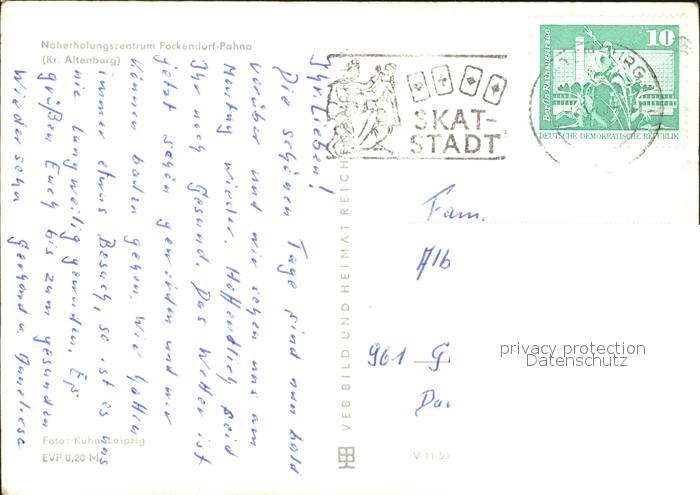 Naherholungszentrum Fockendorf-Pahna
(Kr. Altenburg)
Ihr Lieben!
Die schönen Tage sind nun bald
vorüber und wir sehen uns am
Montag wieder. Hoffendlich seid
Ihr noch gesund. Das Wetter ist
jetzt schön geworden und wir
können baden gehen. Wir hatten
immer etwas Besuch, so ist es uns
nie langweilig geworden. Es
grüßen Euch bis zum gesunden
Wiedersehn Gerhard u. Anneliese
Foto: Kühn, Leipzig
EVP 0,20 M
VEB BILD UND HEIMAT REICHENBACH
V 11 50
SKAT-
STADT
ALTENBURG
10
Berlin-Rathausstraße
DEUTSCHE DEMOKRATISCHE REPUBLIK
Fam.
Alb
961 G
privacy protection
Datenschutz